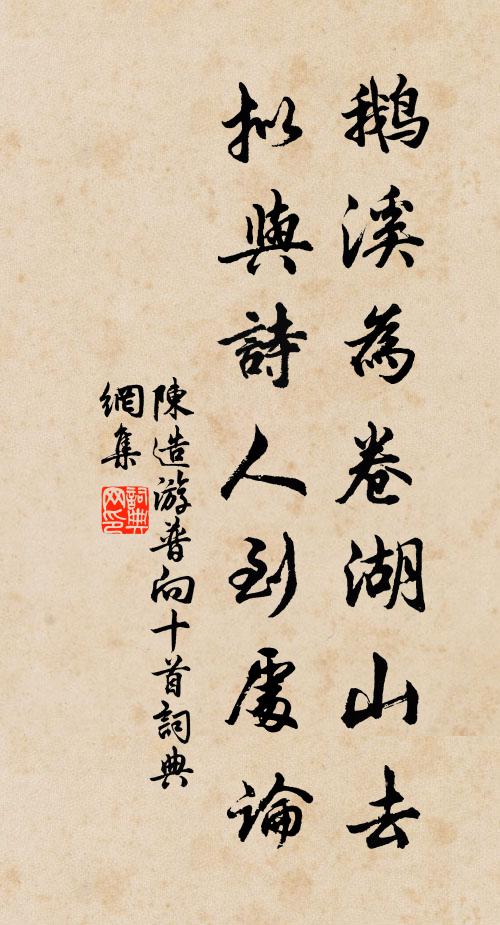 鵝溪為卷湖山去
擬與詩人到處論
陳造游普向十首詞典
網集
詞典
网印